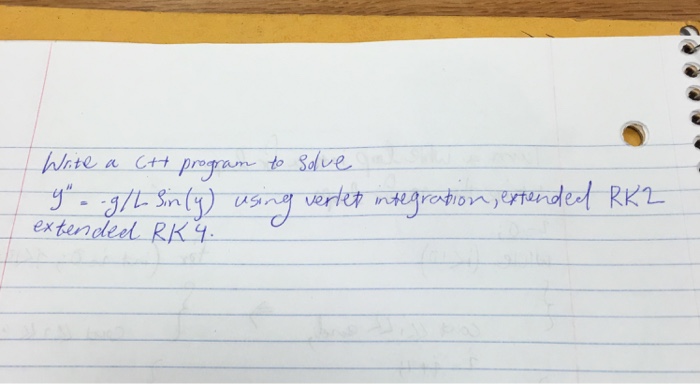 Write a C++ program to solve
y" = -g/L Sin(y) using verlet integration, extended RK2
extended RK4.